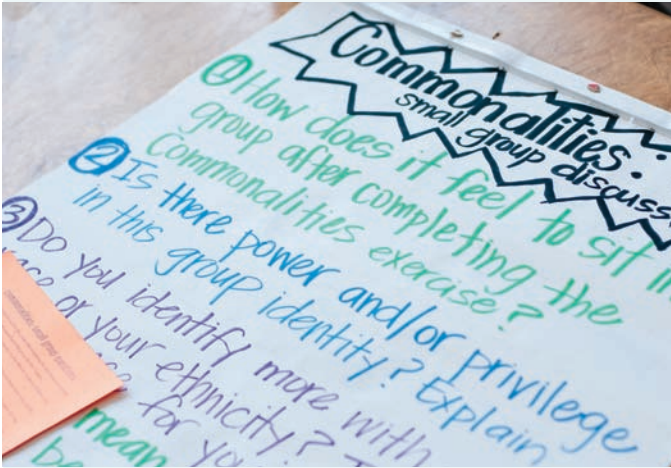 Commonalities.
small group discuss
① How does it feel to sit in
group after completing the
Commonalities exercise?
② Is there power and/or privilege
in this group identity? Explain
③ Do you identify more with
or your ethnicity?
for yo
mean
be